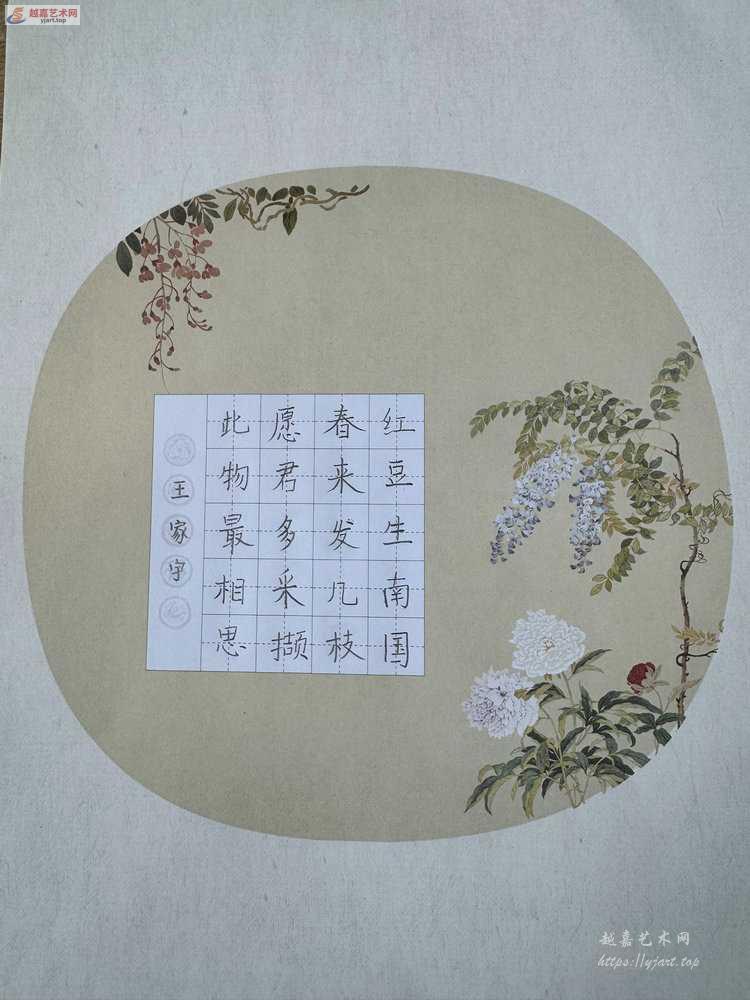 越嘉艺术网
yjart.top
红豆生南国
春来发几枝
愿君多采撷
此物最相思
王家宇
越嘉艺术网
https://yjart.top